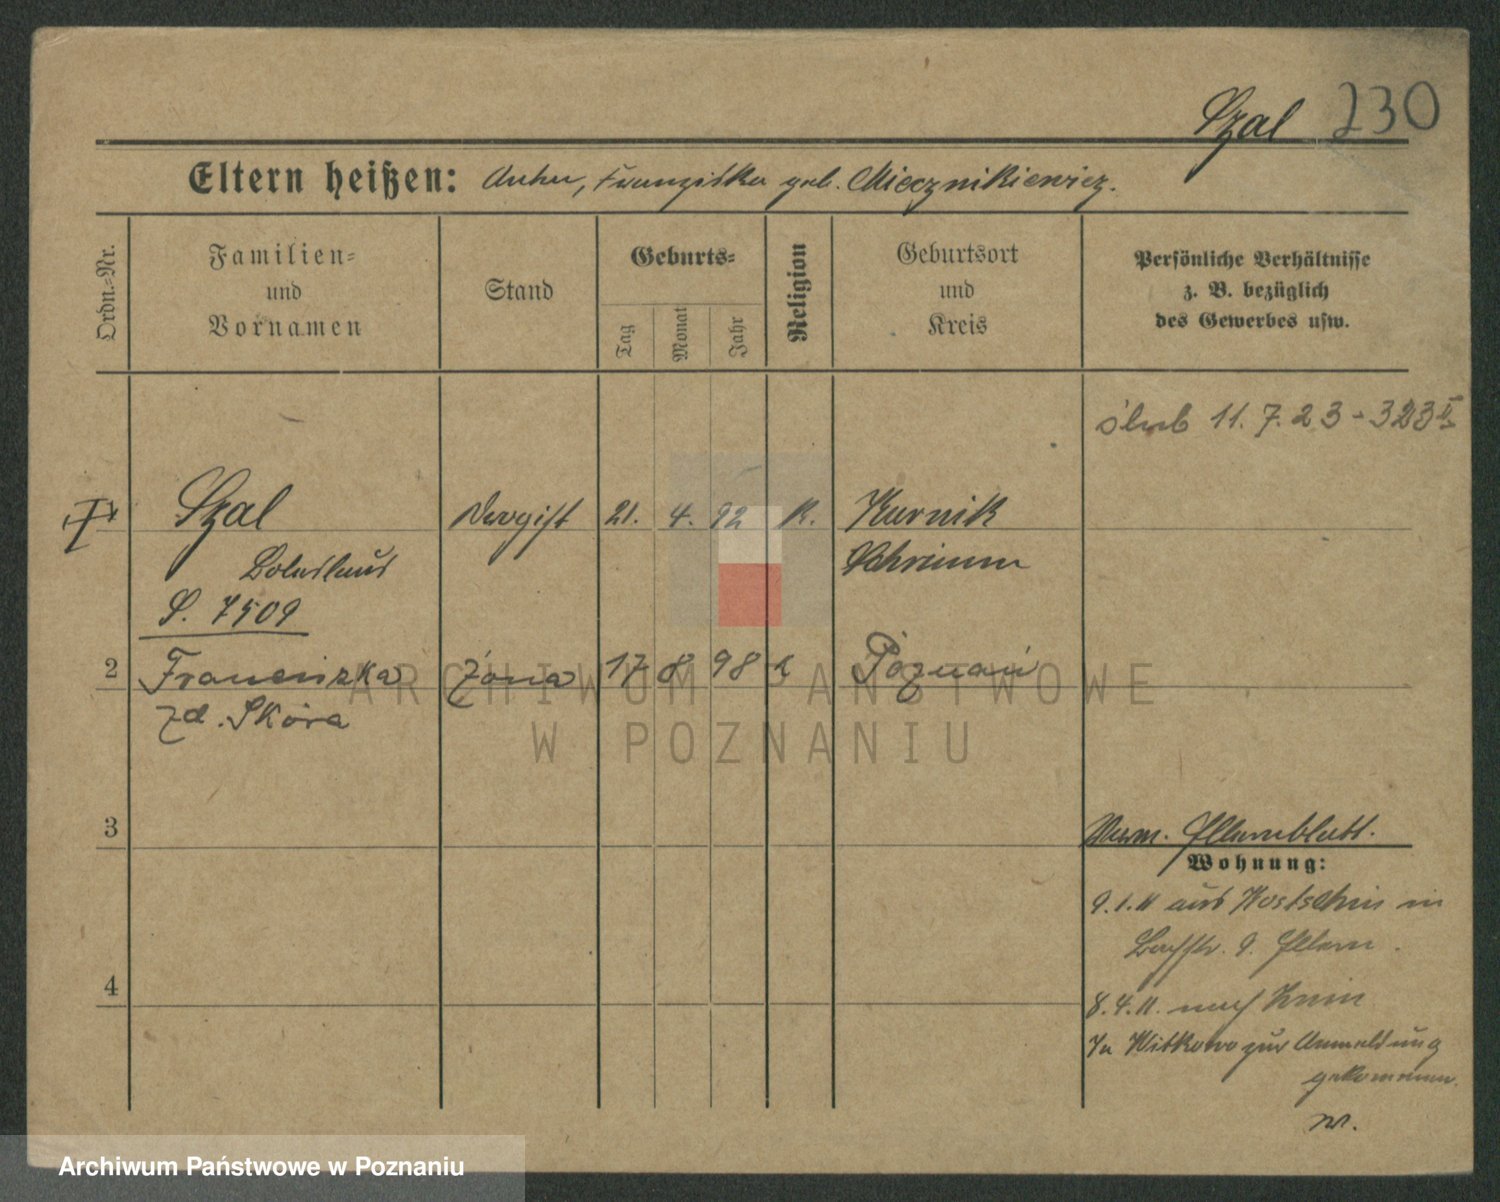 Szal 230
Eltern heißen: Anton, Franziska geb. Miecznikiewicz.
Ordn.-Nr.
Familien-
und
Vornamen
Stand
Geburts-
Tag
Monat
Jahr
Religion
Geburtsort
und
Kreis
Persönliche Verhältnisse
z. B. bezüglich
des Gewerbes usw.
ślub 11. 7. 23 - 323
Szal Drogist 21. 4. 92 K. Kurnik
Boleslaus Schrimm
S. 7509
2 Franciszka żona 17 8 98 k Poznań
zd. Skóra
ARCHIWUM PAŃSTWOWE
W POZNANIU
3
Verm. Elternblatt.
Wohnung:
9.1.11 aus Kostschin in
Bachstr. 9. Eltern.
4
8.4.11. nach Znin
In Witkowo zur Anmeldung
gekommen.
Archiwum Państwowe w Poznaniu